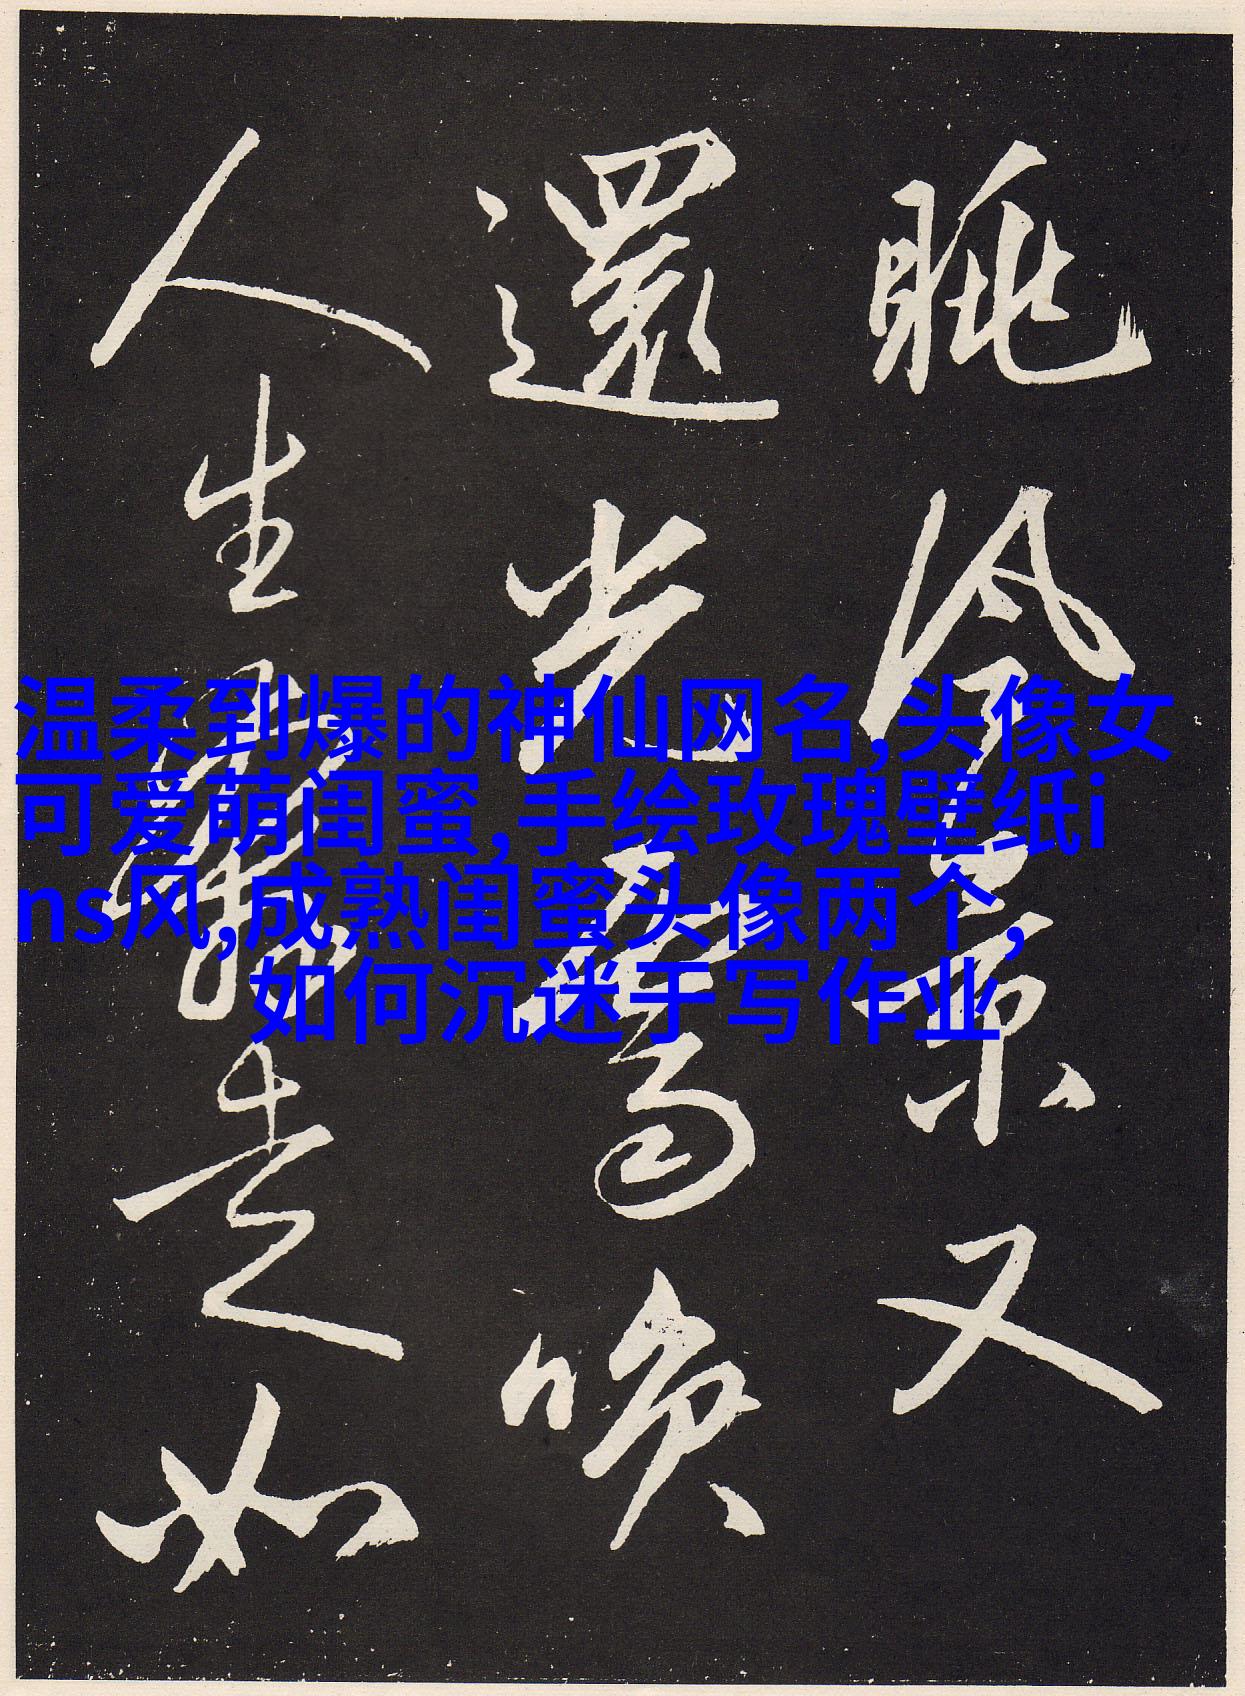 眺冷景又
還光喚
人生走如
温柔到爆的神仙网名,头像女
可爱萌闺蜜,手绘玫瑰壁纸i
ns风,成熟闺蜜头像两个,
如何沉迷于写作业